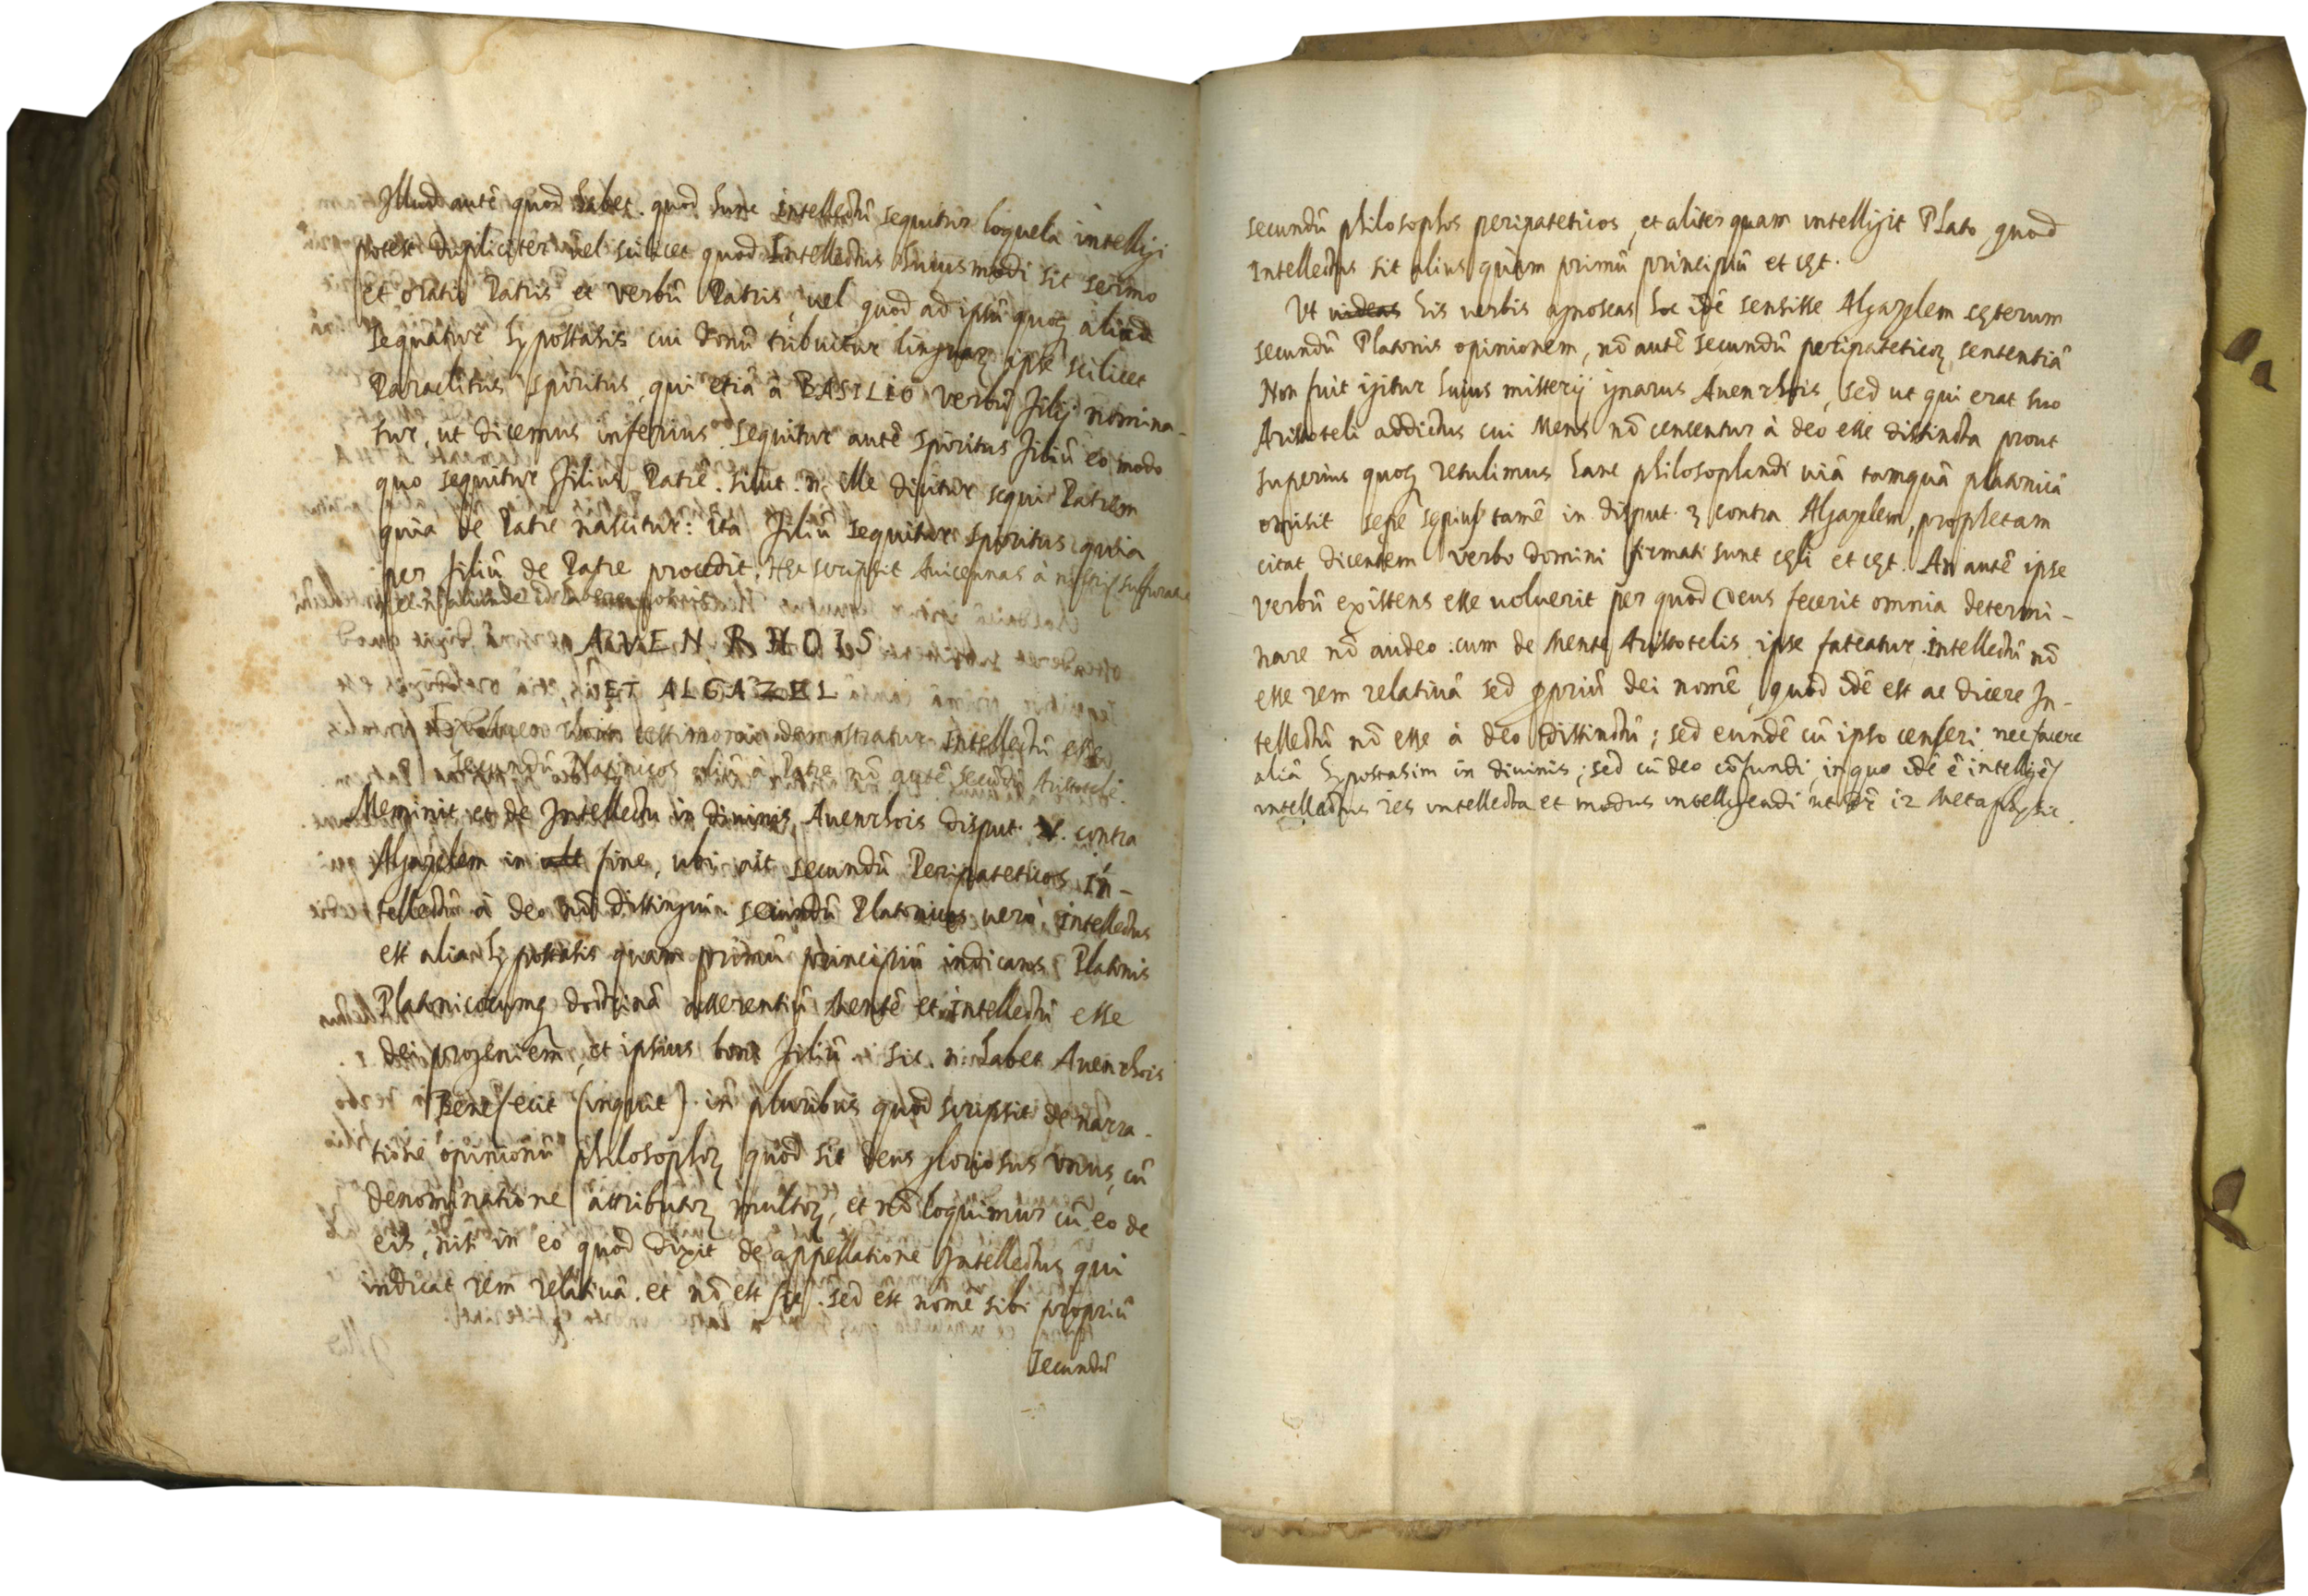 Illud autē quod habet quod hunc intellectū sequitur loquela intelligi
potest dupliciter vel scilicet quod Intellectus huiusmodi sit sermo
et oratio Patris et verbū Patris, vel quod ad ipsū quoq aliud
sequatur hypostasis cui donū tribuitur linguaꝝ ipse scilicet
Paraclitus spiritus, qui etiā à BASILIO verbū filij nomina-
tur, ut dicemus inferius. sequitur autē spiritus filiū eo modo
quo sequitur filius Patrē. sicut .n. ille dicitur sequi Patrem
quia de Patre nascitur: ita filiū sequitur spiritus quia
per filiū de Patre procedit. Hęc scripsit Auicennas à nostris suffurata
nec aliunde habere potuit
AVENRHOIS
ET ALGAZEL
testimonio demonstratur Intellectū esse
secundū Platonicos aliū à Patre nō autē secūdū Aristotelē.
Meminit et de Intellectu in diuinis Auenrhois disput. contra
Algazelem in ult fine, ubi ait secundū Peripateticos in-
tellectū à deo nō distingui. secundū Platonicos uero, intellectus
est alia hypostasis quam primū principiū indicans Platonis
Platonicorumq doctrinā asserentiū Mentē et intellectū esse
dei progeniem, et ipsius boni filiū. sic .n. habet Auenrhois
Bene fecit (inquit) in pluribus quod scripsit de narra-
tione opinionū philosophoꝝ quod sit deus gloriosus unus, cū
denominatione attributoꝝ multoꝝ, et nō loquimur cū eo de
eis, nisi in eo quod dixit de appellatione Intellectus qui
indicat rem relatiuā. et nō est sic. sed est nomē sibi propriū
secundū
secundū philosophos peripateticos, et aliter quam intelligit Plato quod
Intellectus sit alius quàm primū principiū et cęt.
Ut uideas his verbis agnoscas hoc idē sensisse Algazelem cęterum
secundū Platonis opinionem, nō autē secundū peripateticoꝝ sententiā
Non fuit igitur huius misterij ignarus Auenrhois, sed ut qui erat suo
Aristoteli addictus cui Mens nō censentur à deo esse distincta prout
superius quoq retulimus hanc philosophandi uiā tamquā platonicā
omisit sepe sępius tamē in disput. 3 contra Algazelem, prophetam
citat dicentem verbo domini firmati sunt cęli et cęt. An autē ipse
verbū existens esse uoluerit per quod Deus fecerit omnia determi-
nare nō audeo: cum de mente Aristotelis ipse fateatur intellectū nō
esse rem relatiuā sed ꝓpriū dei nomē, quod idē est ac dicere In-
tellectū nō esse à deo distinctū; sed eundē cū ipso censeri nec facere
aliā hypostasim in diuinis; sed cū deo cōfundi in quo idē ē intelligēs
intellectus res intellecta et modus intelligendi ut dr̄ 12 Metaphysic.